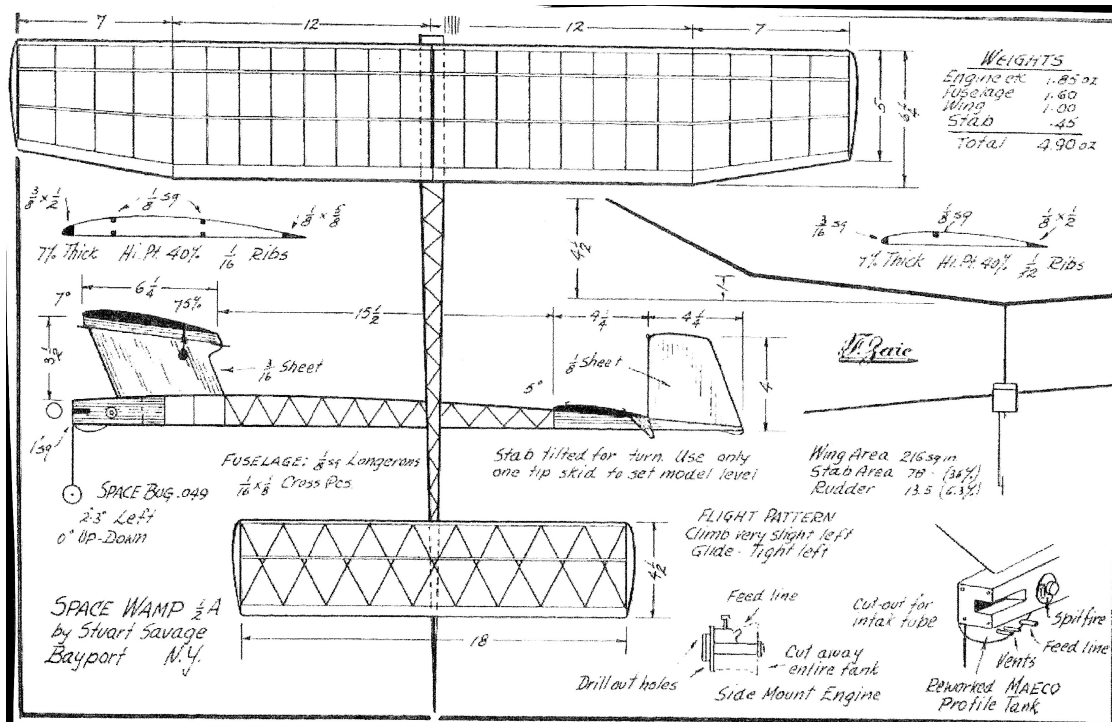 7 12 12 7
WEIGHTS
Engine etc 1.85 oz
Fuselage 1.60
Wing 1.00
Stab .45
Total 4.90 oz
5
6 1/4
3/8 x 1/2
1/8 sq
1/8 x 5/8
7% Thick Hi. Pt. 40% 1/16 Ribs
4 1/2
1
3/16 sq
1/8 sq
1/8 x 1/2
7% Thick Hi. Pt. 40% 1/32 Ribs
6 1/4
7°
75%
15 1/2
4 1/4
4 1/4
3 1/2
3/16 Sheet
1/8 Sheet
5°
4
F. Zaic
1" sq
FUSELAGE: 1/8 sq Longerons
1/16 x 1/8 Cross Pcs.
Stab tilted for turn. Use only
one tip skid to set model level
Wing Area 216 sq in
Stab Area 78 - (36%)
Rudder 13.5 (6.3%)
SPACE BUG .049
2°-3° Left
0° UP-DOWN
FLIGHT PATTERN
Climb very slight left
Glide - Tight left
4 1/2
18
SPACE WAMP 1/2 A
by Stuart Savage
Bayport N.Y.
Feed line
Drill out holes
Cut away
entire tank
Side Mount Engine
Cut-out for
intak tube
Spitfire
Feed line
Vents
Reworked MAECO
Profile Tank